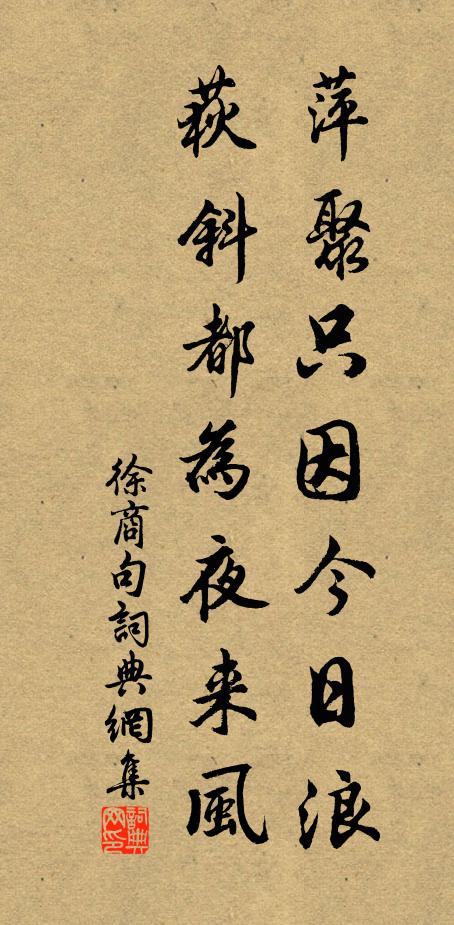 萍聚只因今日浪
荻斜都為夜来風
徐商句詞典網集
詞典网印